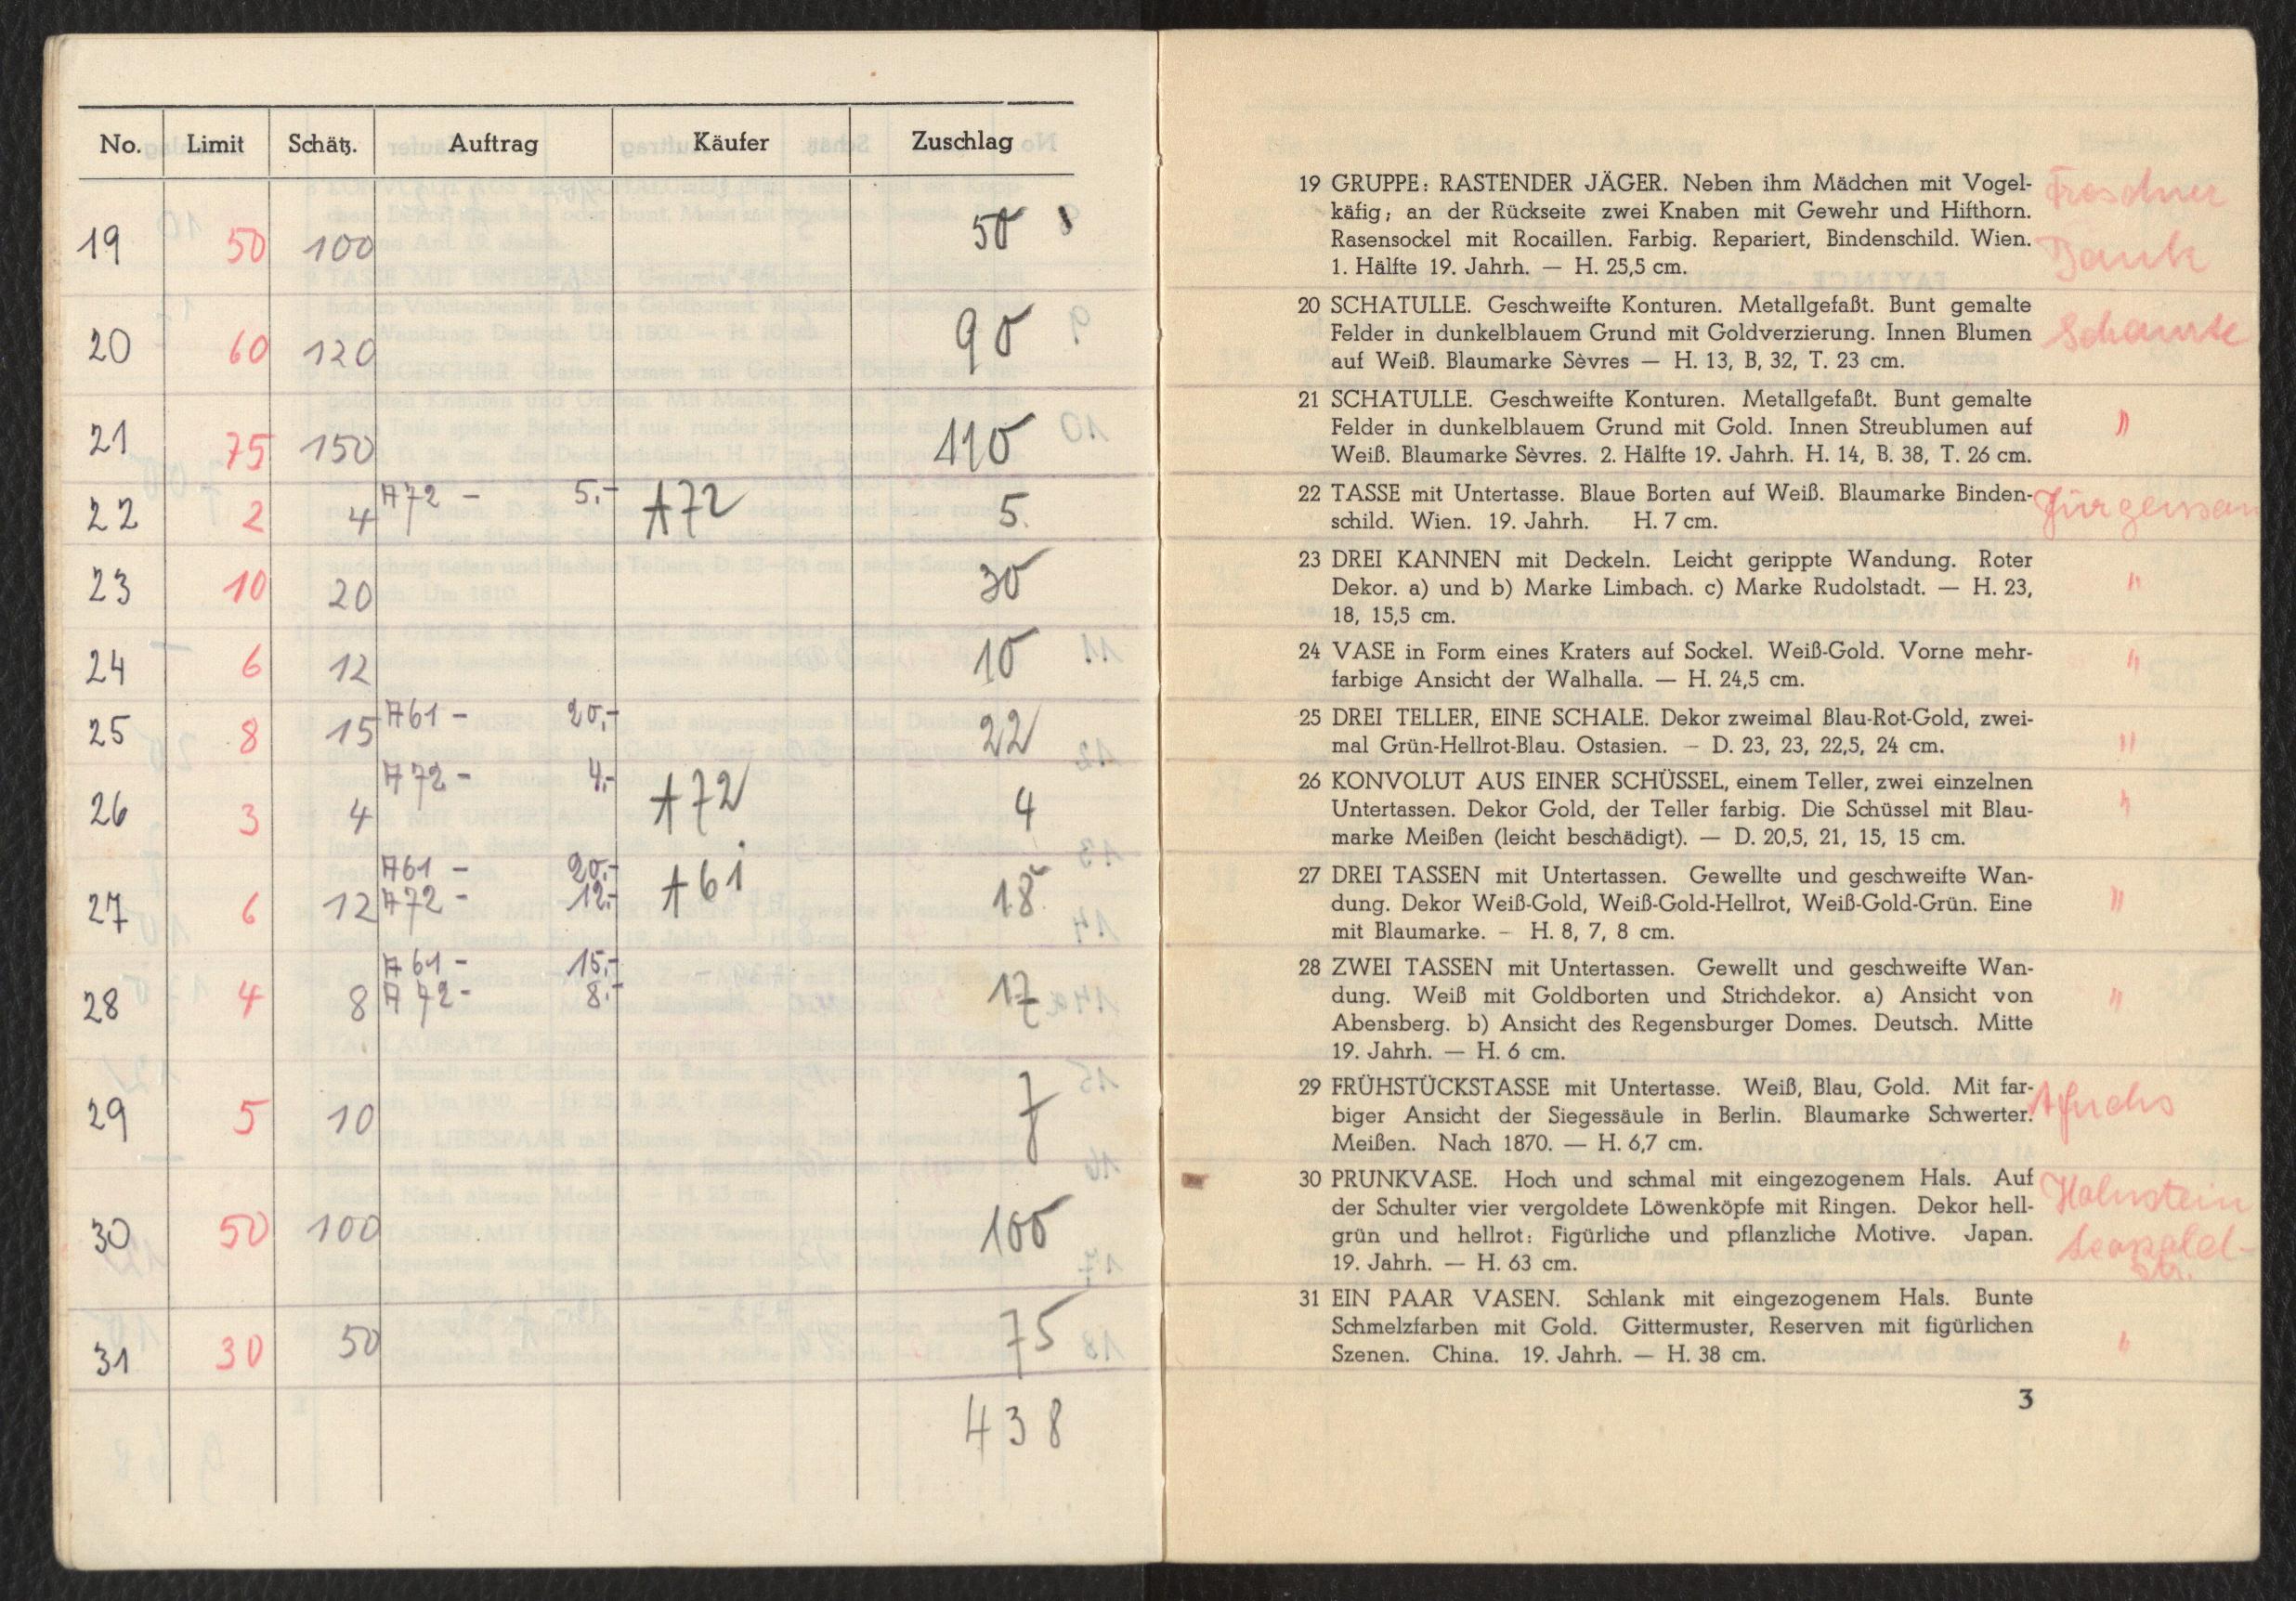 No. Limit Schätz. Auftrag Käufer Zuschlag
19 50 100 50
20 60 120 90
21 75 150 110
22 2 4 A72 - 5.- A72 5.
23 10 20 30
24 6 12 10
25 8 15 A61 - 20.- 22
26 3 4 A72 - 4.- A72 4
27 6 12 A61 - 20.- A61 18
A72 - 12.-
28 4 8 A61 - 15.- 17
A72 - 8.-
29 5 10 7
30 50 100 100
31 30 50 75
438
19 GRUPPE: RASTENDER JÄGER. Neben ihm Mädchen mit Vogel-
käfig; an der Rückseite zwei Knaben mit Gewehr und Hifthorn.
Rasensockel mit Rocaillen. Farbig. Repariert, Bindenschild. Wien.
1. Hälfte 19. Jahrh. — H. 25,5 cm.
Bank
20 SCHATULLE. Geschweifte Konturen. Metallgefaßt. Bunt gemalte
Felder in dunkelblauem Grund mit Goldverzierung. Innen Blumen
auf Weiß. Blaumarke Sèvres — H. 13, B, 32, T. 23 cm.
21 SCHATULLE. Geschweifte Konturen. Metallgefaßt. Bunt gemalte
Felder in dunkelblauem Grund mit Gold. Innen Streublumen auf "
Weiß. Blaumarke Sèvres. 2. Hälfte 19. Jahrh. H. 14, B. 38, T. 26 cm.
22 TASSE mit Untertasse. Blaue Borten auf Weiß. Blaumarke Binden-
schild. Wien. 19. Jahrh. H. 7 cm.
23 DREI KANNEN mit Deckeln. Leicht gerippte Wandung. Roter
Dekor. a) und b) Marke Limbach. c) Marke Rudolstadt. — H. 23, "
18, 15,5 cm.
24 VASE in Form eines Kraters auf Sockel. Weiß-Gold. Vorne mehr- "
farbige Ansicht der Walhalla. — H. 24,5 cm.
25 DREI TELLER, EINE SCHALE. Dekor zweimal Blau-Rot-Gold, zwei-
mal Grün-Hellrot-Blau. Ostasien. – D. 23, 23, 22,5, 24 cm. "
26 KONVOLUT AUS EINER SCHÜSSEL, einem Teller, zwei einzelnen
Untertassen. Dekor Gold, der Teller farbig. Die Schüssel mit Blau- "
marke Meißen (leicht beschädigt). — D. 20,5, 21, 15, 15 cm.
27 DREI TASSEN mit Untertassen. Gewellte und geschweifte Wan-
dung. Dekor Weiß-Gold, Weiß-Gold-Hellrot, Weiß-Gold-Grün. Eine "
mit Blaumarke. – H. 8, 7, 8 cm.
28 ZWEI TASSEN mit Untertassen. Gewellt und geschweifte Wan-
dung. Weiß mit Goldborten und Strichdekor. a) Ansicht von "
Abensberg. b) Ansicht des Regensburger Domes. Deutsch. Mitte
19. Jahrh. — H. 6 cm.
29 FRÜHSTÜCKSTASSE mit Untertasse. Weiß, Blau, Gold. Mit far-
biger Ansicht der Siegessäule in Berlin. Blaumarke Schwerter.
Meißen. Nach 1870. — H. 6,7 cm.
30 PRUNKVASE. Hoch und schmal mit eingezogenem Hals. Auf
der Schulter vier vergoldete Löwenköpfe mit Ringen. Dekor hell- Halmstein
grün und hellrot: Figürliche und pflanzliche Motive. Japan. Leopold-
19. Jahrh. — H. 63 cm. str.
31 EIN PAAR VASEN. Schlank mit eingezogenem Hals. Bunte
Schmelzfarben mit Gold. Gittermuster, Reserven mit figürlichen "
Szenen. China. 19. Jahrh. — H. 38 cm.
3